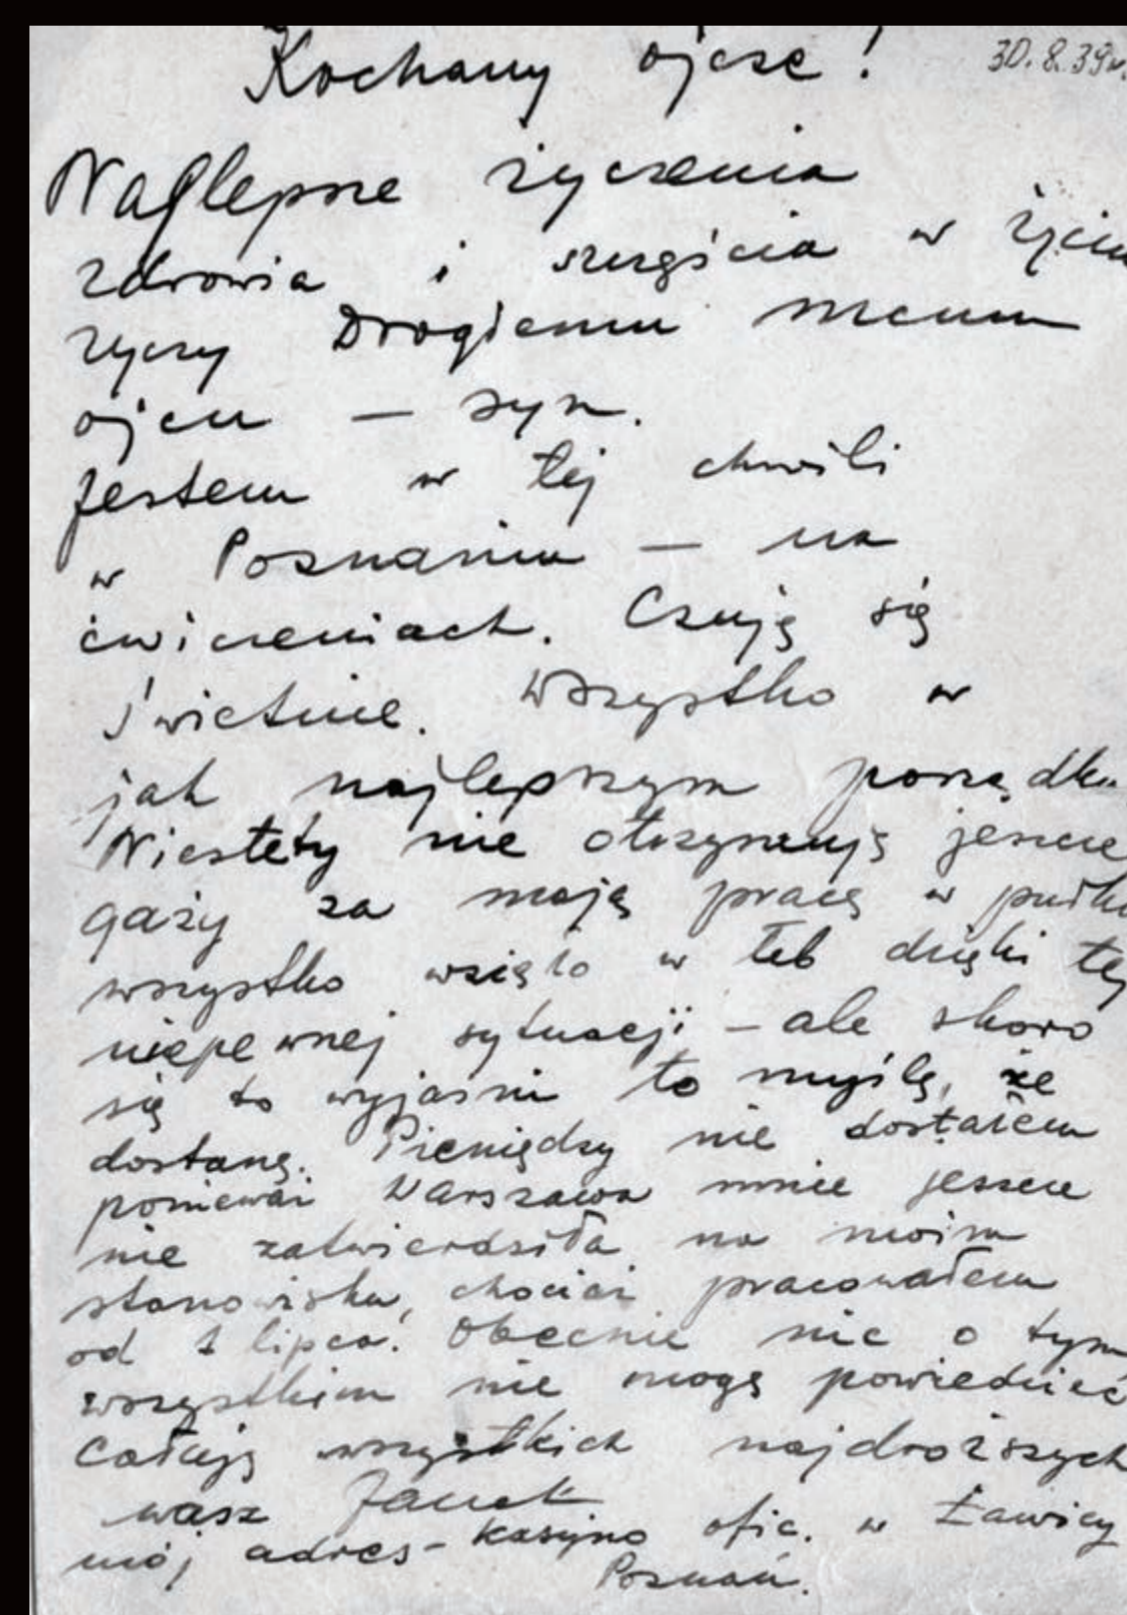 Kochany ojcze! 30.8.39r.
Najlepsze życzenia
zdrowia i szczęścia w życiu
życzy Drogiemu memu
ojcu — syn.
Jestem w tej chwili
w Poznaniu — na
ćwiczeniach. Czuję się
świetnie. Wszystko w
jak najlepszym porządku
Niestety nie otrzymuję jeszcze
gaży za moją pracę w pułku
wszystko wzięło w łeb dzięki tej
niepewnej sytuacji – ale skoro
się to wyjaśni to myślę, że
dostanę. Pieniędzy nie dostałem
ponieważ Warszawa mnie jeszcze
nie zatwierdziła na moim
stanowisku, chociaż pracowałem
od 1 lipca. Obecnie nic o tym
wszystkim nie mogę powiedzieć
Całuję wszystkich najdroższych
wasz Janek
mój adres – kasyno ofic. w Ławicy
Poznań.